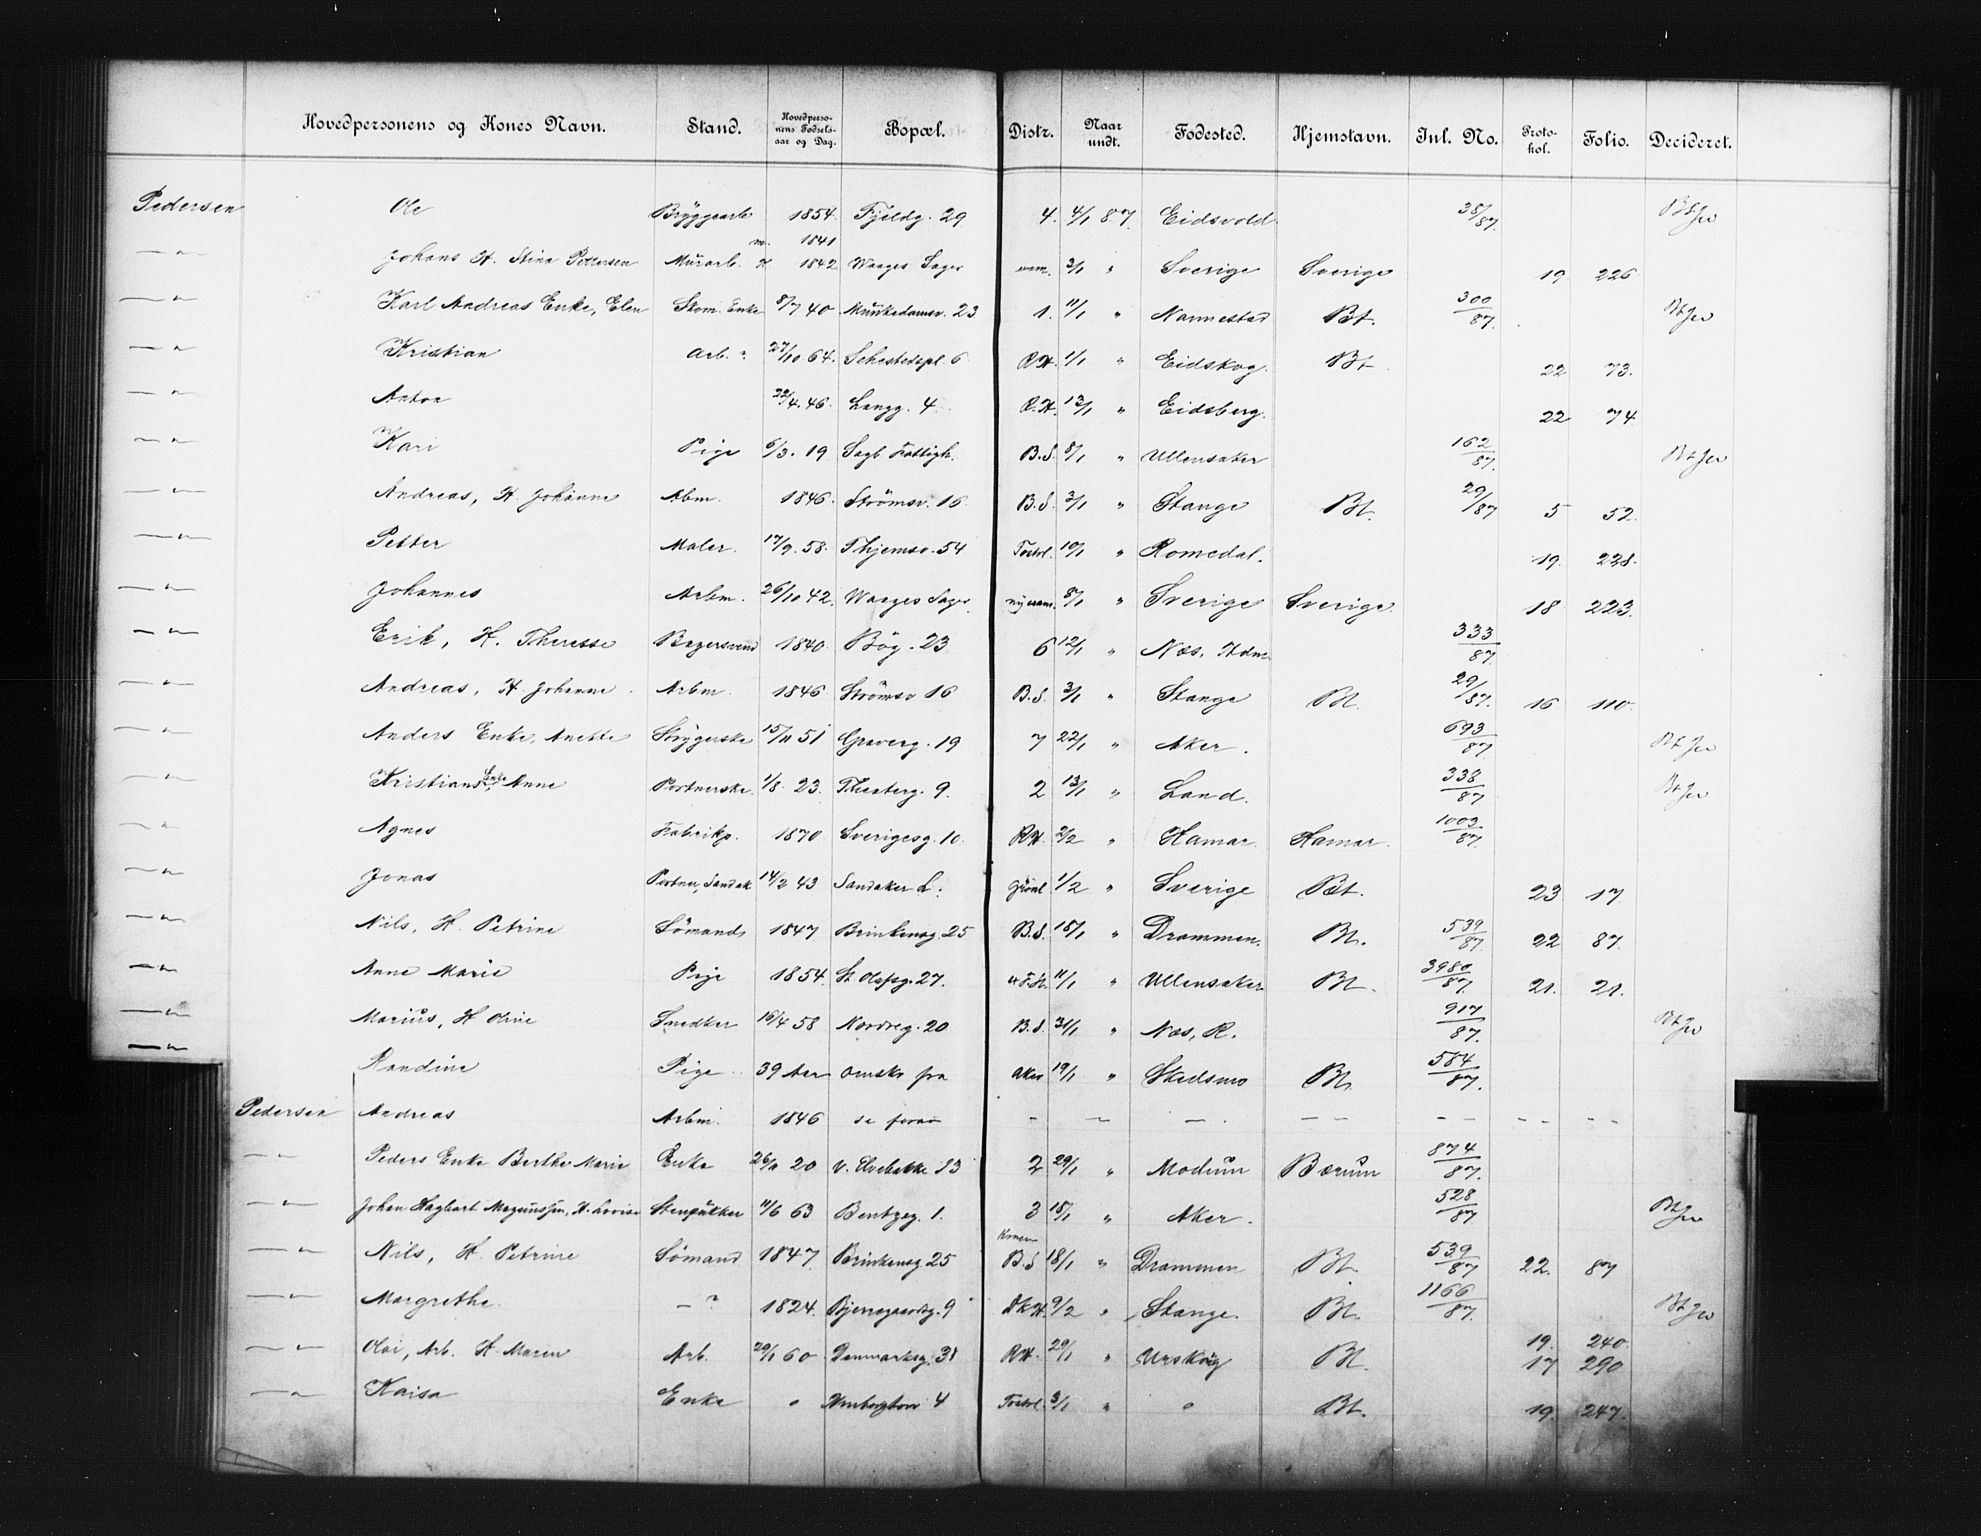 Hovedpersonens og Kones Navn. Stand. Hovedperso-nens Fødsels-aar og Dag. Bopæl. Distr. Naar undt. Fødested. Hjemstavn. Inl. No. Proto-kol. Folio. Decideret.
Pedersen Ole Bryggearb 1854. Fjeldg. 29 4. 4/1 87. Eidsvold 38/87
— " — Johans H. Stina Pettersen Murarb. m. 1841 H 1842 Waages Sager 3/1 " Sverige Sverige 19 226
— " — Karl Andreas Enke, Elen Skom. Enke 8/7 40. Munkedamsv. 23 1. 11/1 " Nannestad Bt. 300/87.
— " — Kristian Arb. ? 27/10 64. Sehestedspl. 6 R.H. 1/1 " Eidskog. Bt 22 73.
— " — Anton 22/4. 46. Langg. 4. R.H. 13/1 " Eidsberg. 22 74
— " — Kari Pige 6/3. 19 Sagb Fattigh. B.S. 8/1 " Ullensaker 162/87.
— " — Andreas, H. Johanne Arbm. 1846. Strømsv. 16 B.S. 3/1 " Stange Bt. 29/87 5 52.
— " — Petter Maler. 17/9. 58. Thjemsv. 54 10/1 " Romedal. 19. 228.
— " — Johannes Arbm. 26/10 42. Waages Sager 8/1 " Sverige Sverige. 18 223.
— " — Erik, H. Therese Bagersvend 1840. Bøg. 23 6 12/1 " Næs, Hdm 333/87
— " — Andreas, H Johanne. Arbm. 1846 Strømsv 16 B.S. 3/1 " Stange Bt. 29/87. 16 110.
— " — Anders Enke, Anette Strygerske 15/11 51 Graverg. 19 7 22/1 " Aker. 693/87.
— " — Kristians Enke, Anne Portnerske 1/8. 23. Theaterg. 9. 2 13/1 " Land. 338/87
— " — Agnes Fabrikp. 1870 Sverigesg. 10. RH. 2/2 " Hamar. Hamar. 1003/87.
— " — Jonas Portner, Sandak 14/2 43 Sandaker L. Grønl 1/2 " Sverige Bt. 23 17.
— " — Nils, H. Petrine Sømand 1847 Brinkensg 25 B.S. 18/1 " Drammen. Bt. 539/87. 22 87.
— " — Anne Marie Pige 1854. St Olafsg. 27. 11/1 " Ullensaker Bt. 3980/87. 21. 21.
— " — Marius, H Oline Snedker 16/4 58 Nordreg. 20 B.S. 31/1 " Næs, R. 917/87.
— " — Randine Pige 39 Aar omskr fra Aker 19/1 " Skedsmo Bt. 584/87.
Pedersen Andreas Arbm. 1846 se foran — — — . — — — — — — — —
— " — Peders Enke Berthe Marie Enke 26/11 20 v. Elvebakke 13 2 29/1 " Modum Bærum 874/87.
— " — Johan Hagbart Magnussen, H. Lovise Stenpukker 11/6 63 Bentzeg. 1. 3 18/1 " Aker. 528/87
— " — Nils, H. Petrine Sømand 1847. Brinkensg 25 Konen B.S 18/1 " Drammen Bt. 539/87 22. 87
— " — Margrethe. — ? 1824. Bjerregaardsg. 9 9/2 " Stange. Bt. 1166/87.
— " — Olai, Arb. H. Maren Arb. 29/1 60 Danmarksg. 31 RH. 29/1 " Urskoug Bt. 19. 240. 17 290
— " — Kaisa Enke " 4 3/1 " " Bt. 19. 247.